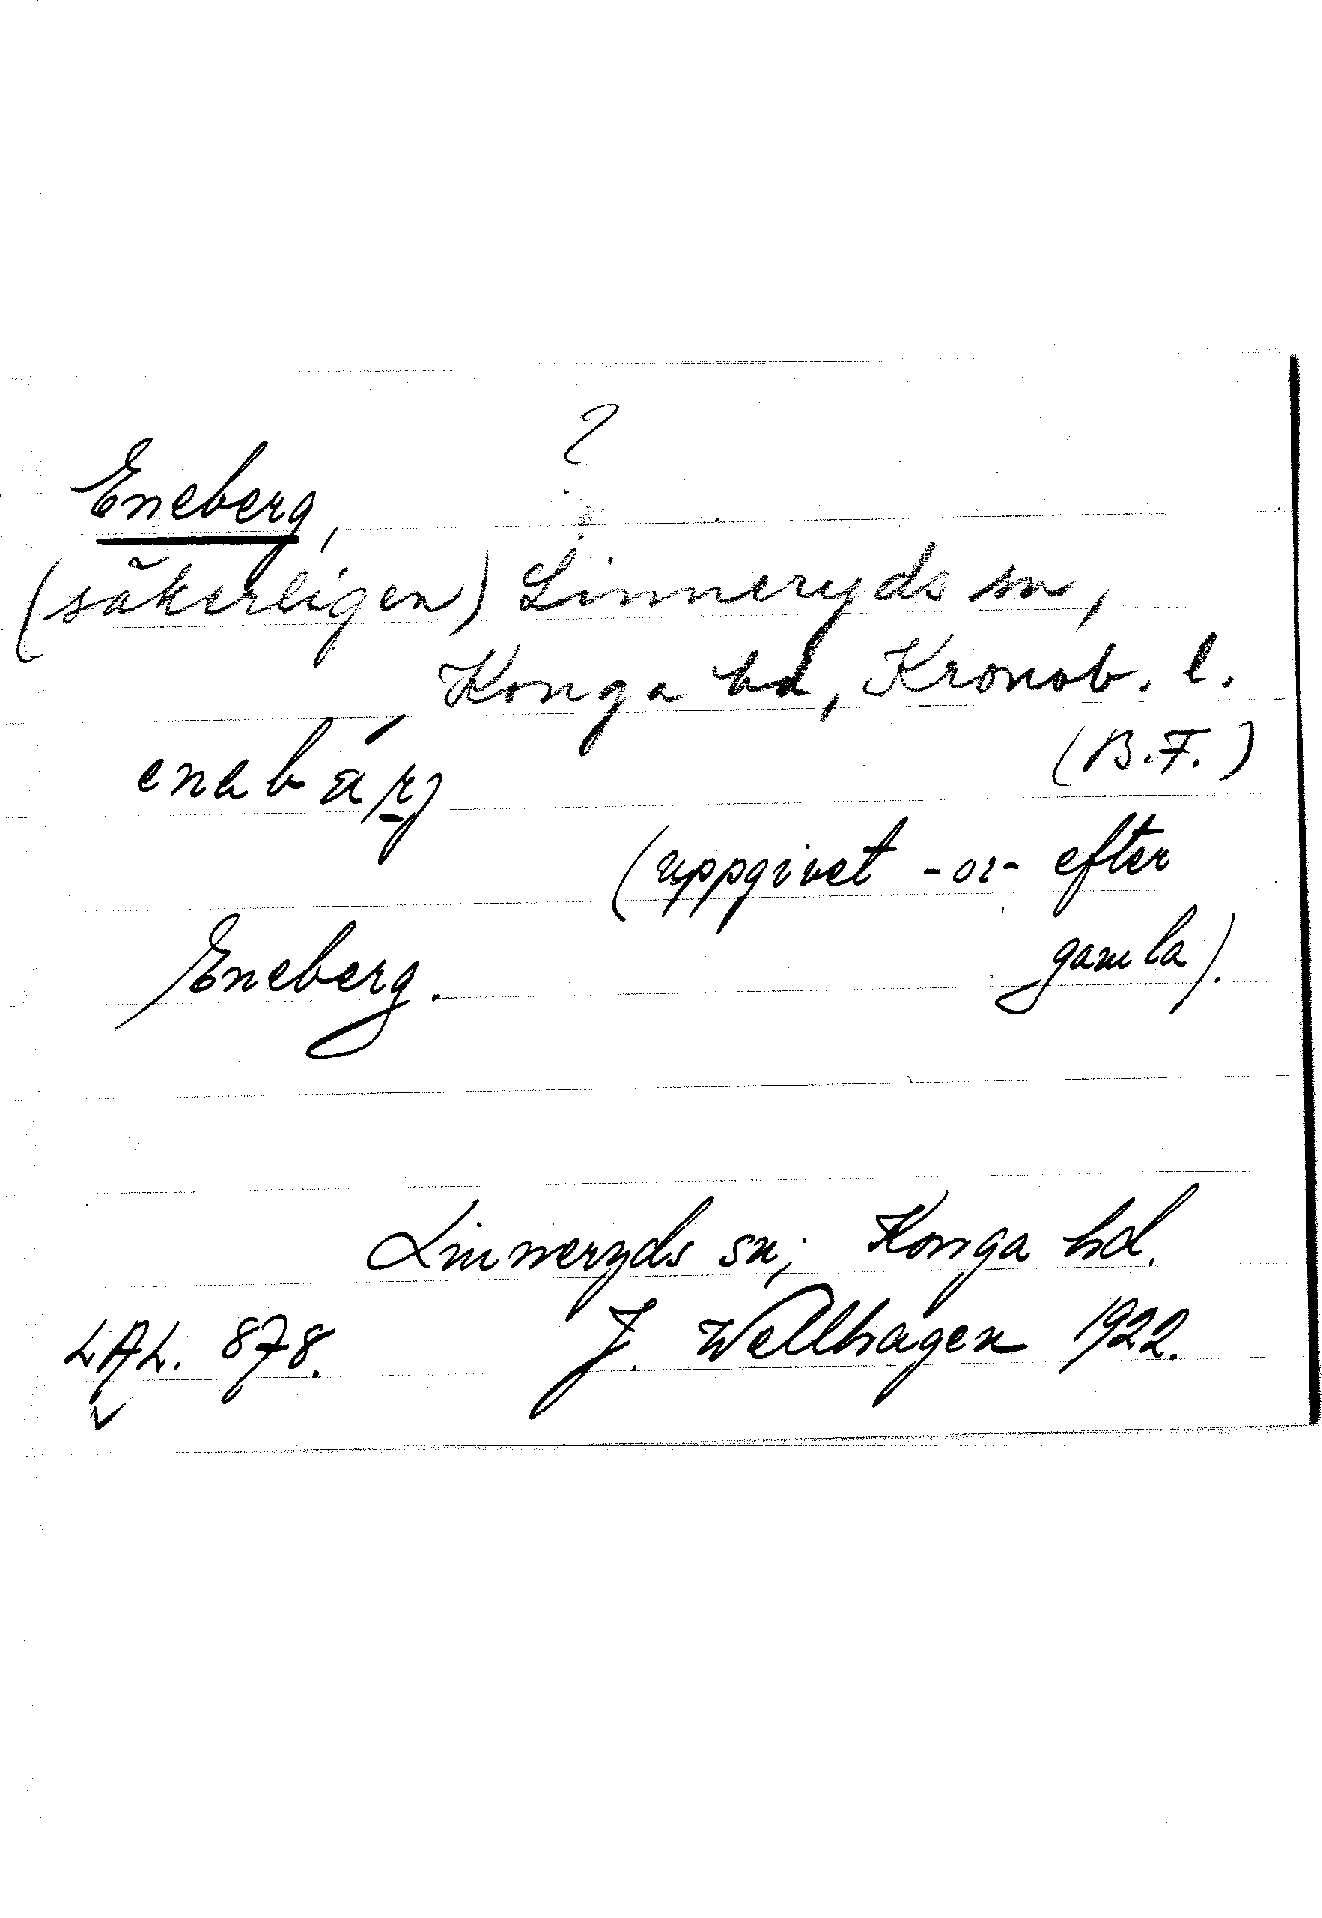 ?
Eneberg,
(säkerligen) Linneryds sn,
Konga hd, Kronob. l.
(B.F.)
(uppgivet -or- efter
gamla).
Eneberg.
Linneryds sn; Konga hd.
LAL. 878. J. Wellhagen 1922.